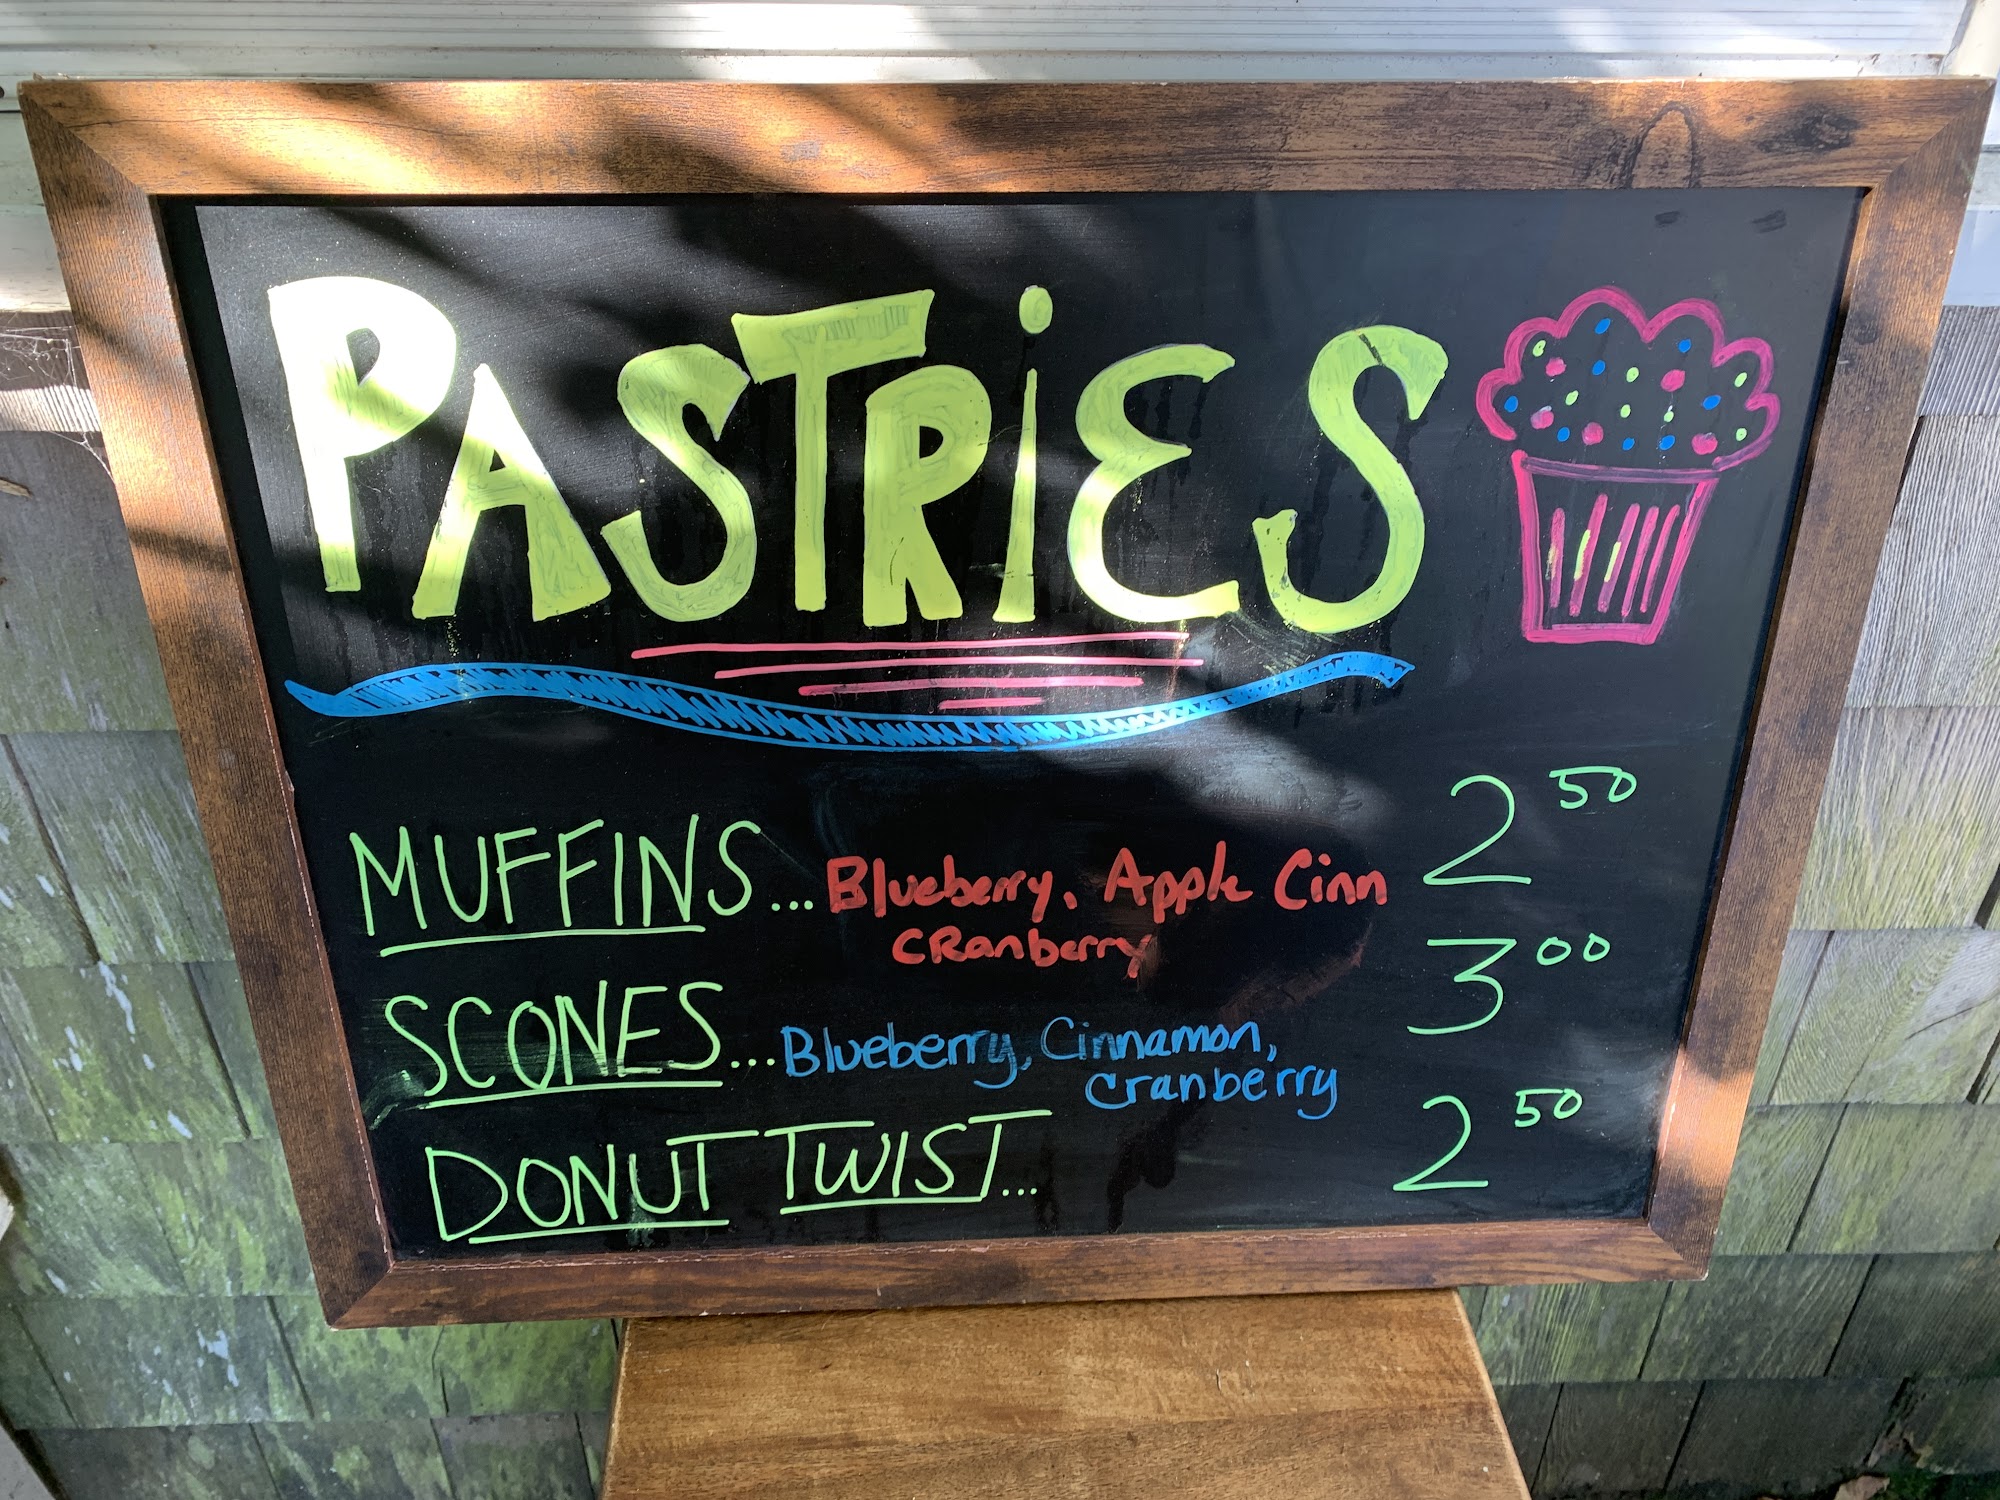 PASTRiES
MUFFINS... Blueberry, Apple Cinn 2 50
CRanberry
SCONES... Blueberry, Cinnamon, 3 00
cranberry
DONUT TWIST... 2 50